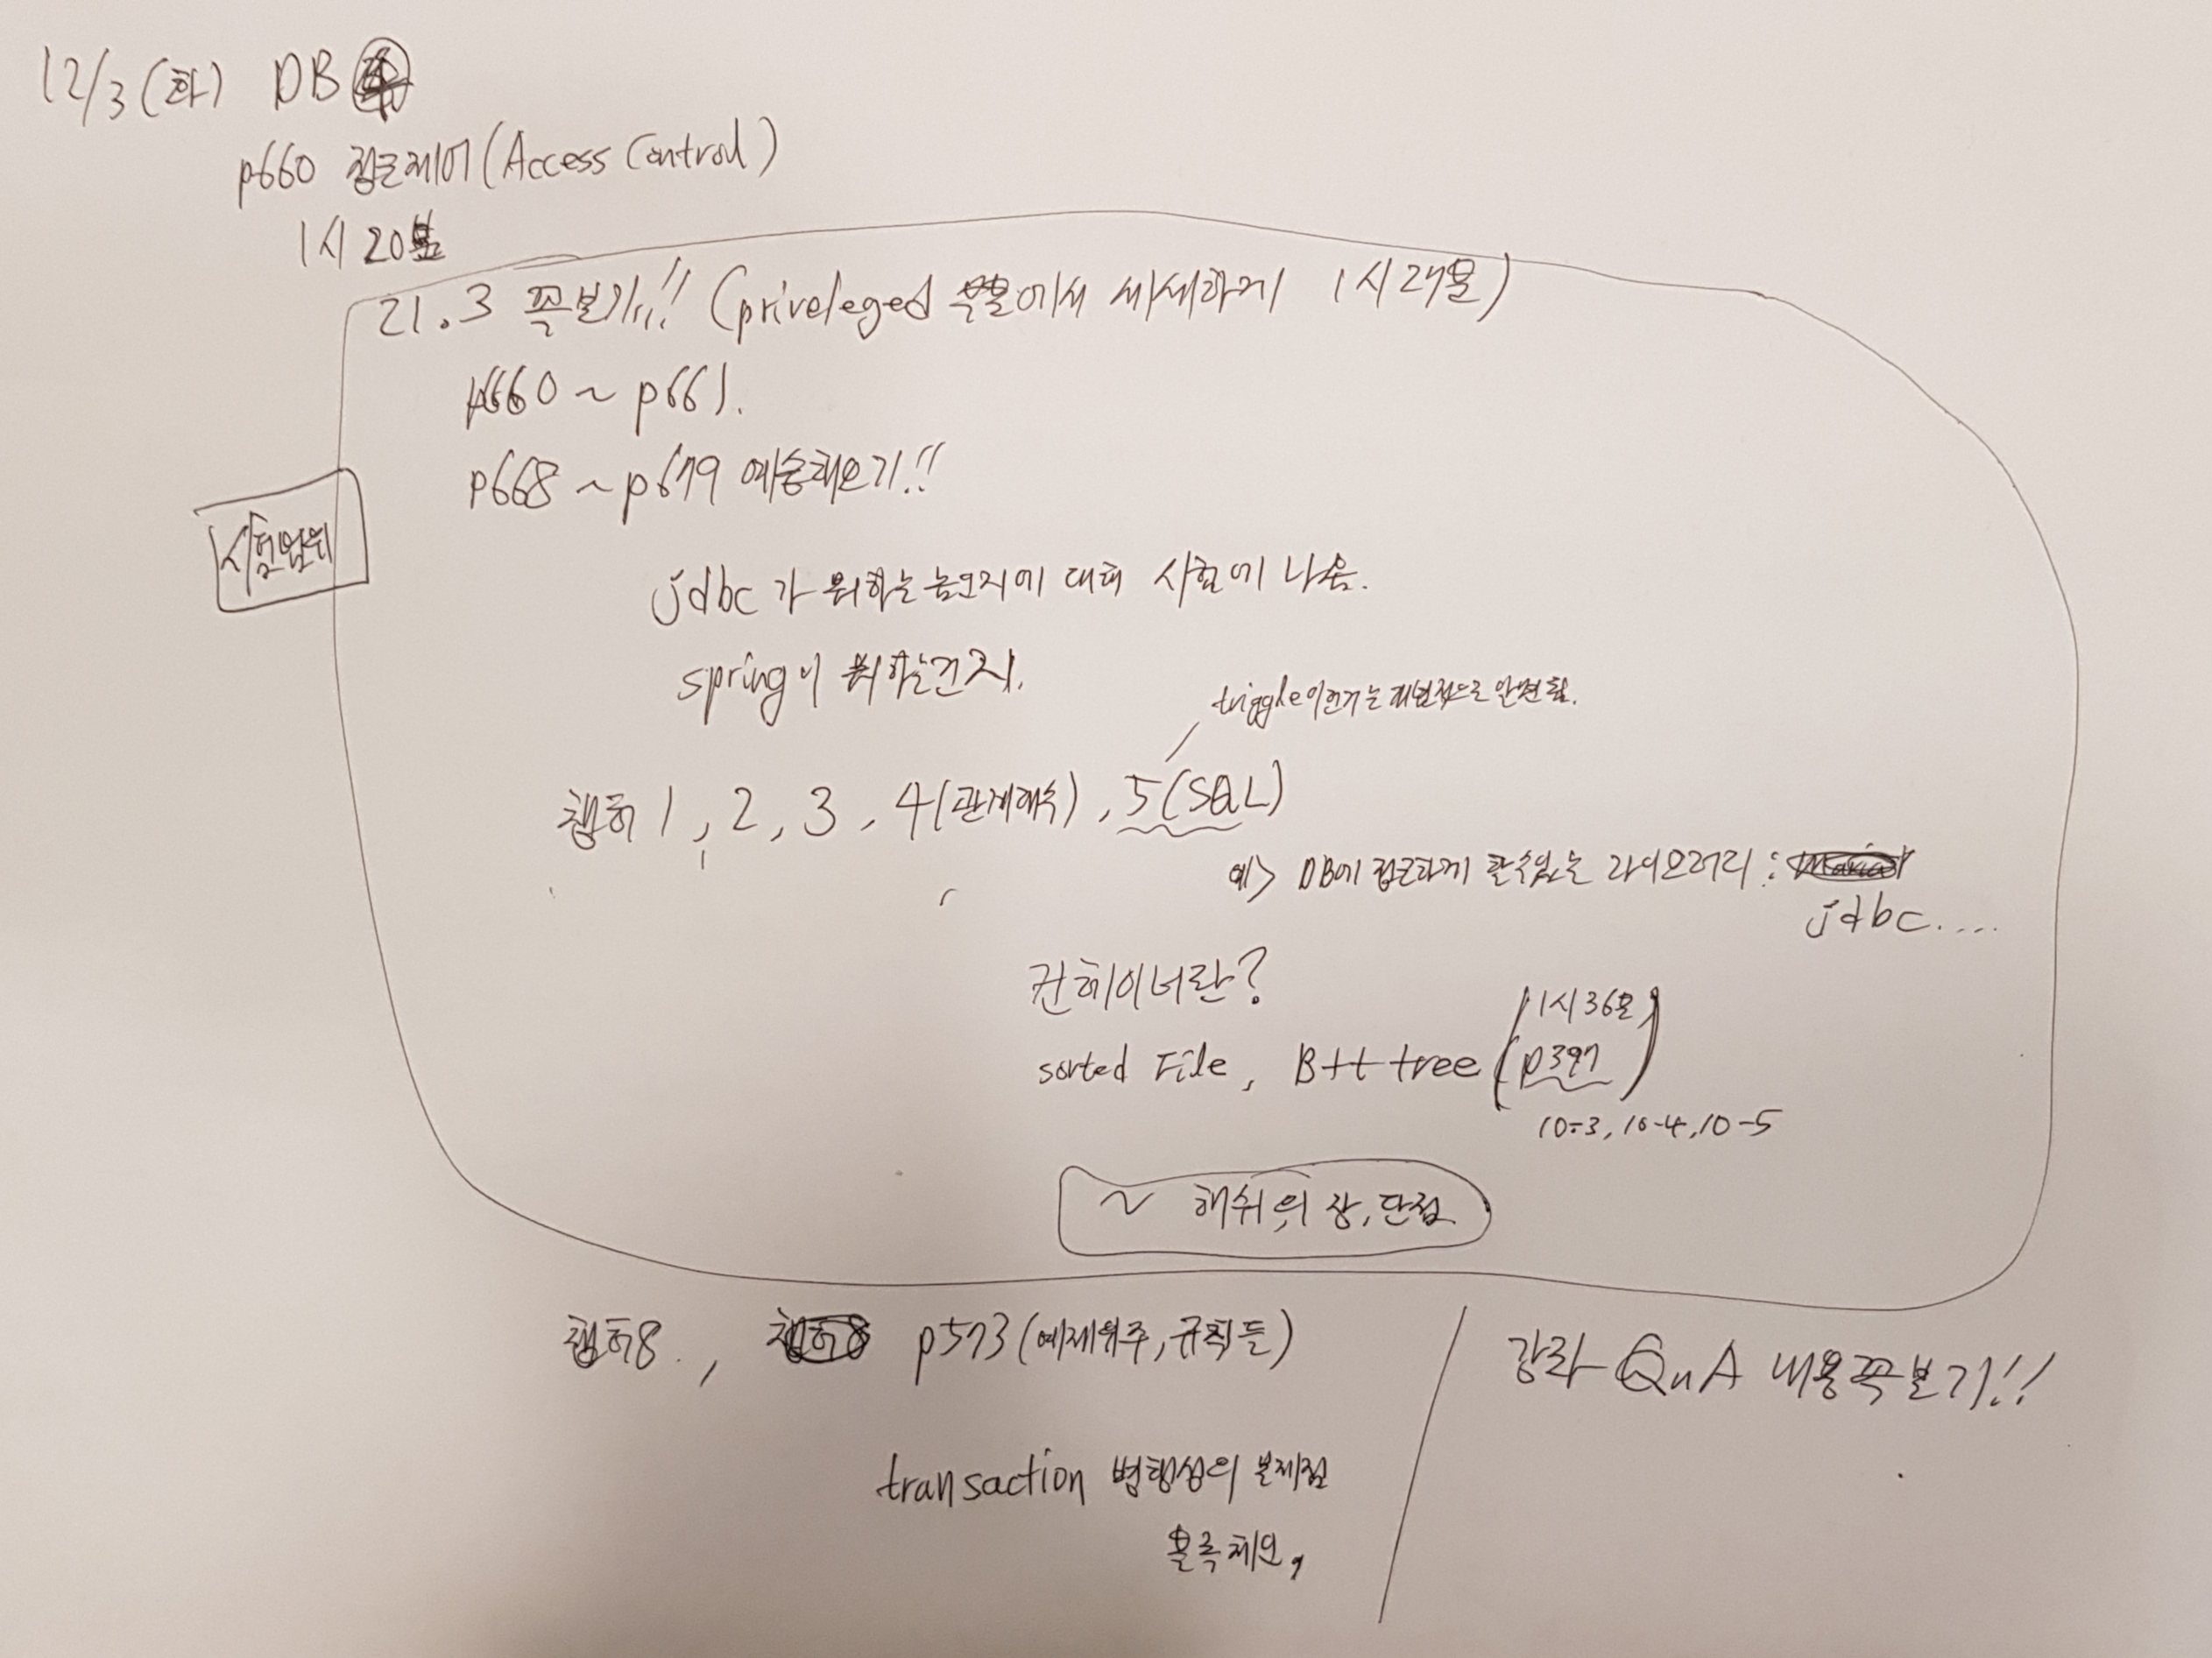 12/3(화) DB
p660 접근제어(Access Control)
1시 20분
21.3 꼭보기!!! (priveleged 쪽에서 세세하게 1시 27분)
p660 ~ p661.
p668 ~ p679 예습해오기!!
시험범위
jdbc가 뭐하는놈인지에 대해 시험에 나옴.
spring이 뭐하는건지.
triggle이런거는 개별적으로 안변함.
챕터 1, 2, 3, 4(관계해수), 5(SQL)
예> DB에 접근하게 할수있는 라이브러리 :
jdbc....
컨테이너란?
1시 36분
sorted File, B++ tree (p397)
10-3, 10-4, 10-5
~ 해쉬의 장,단점
챕터8., p573(예제위주,규칙들)
강좌-QnA 내용꼭보기!!
transaction 병행성의 문제점
블록체인,